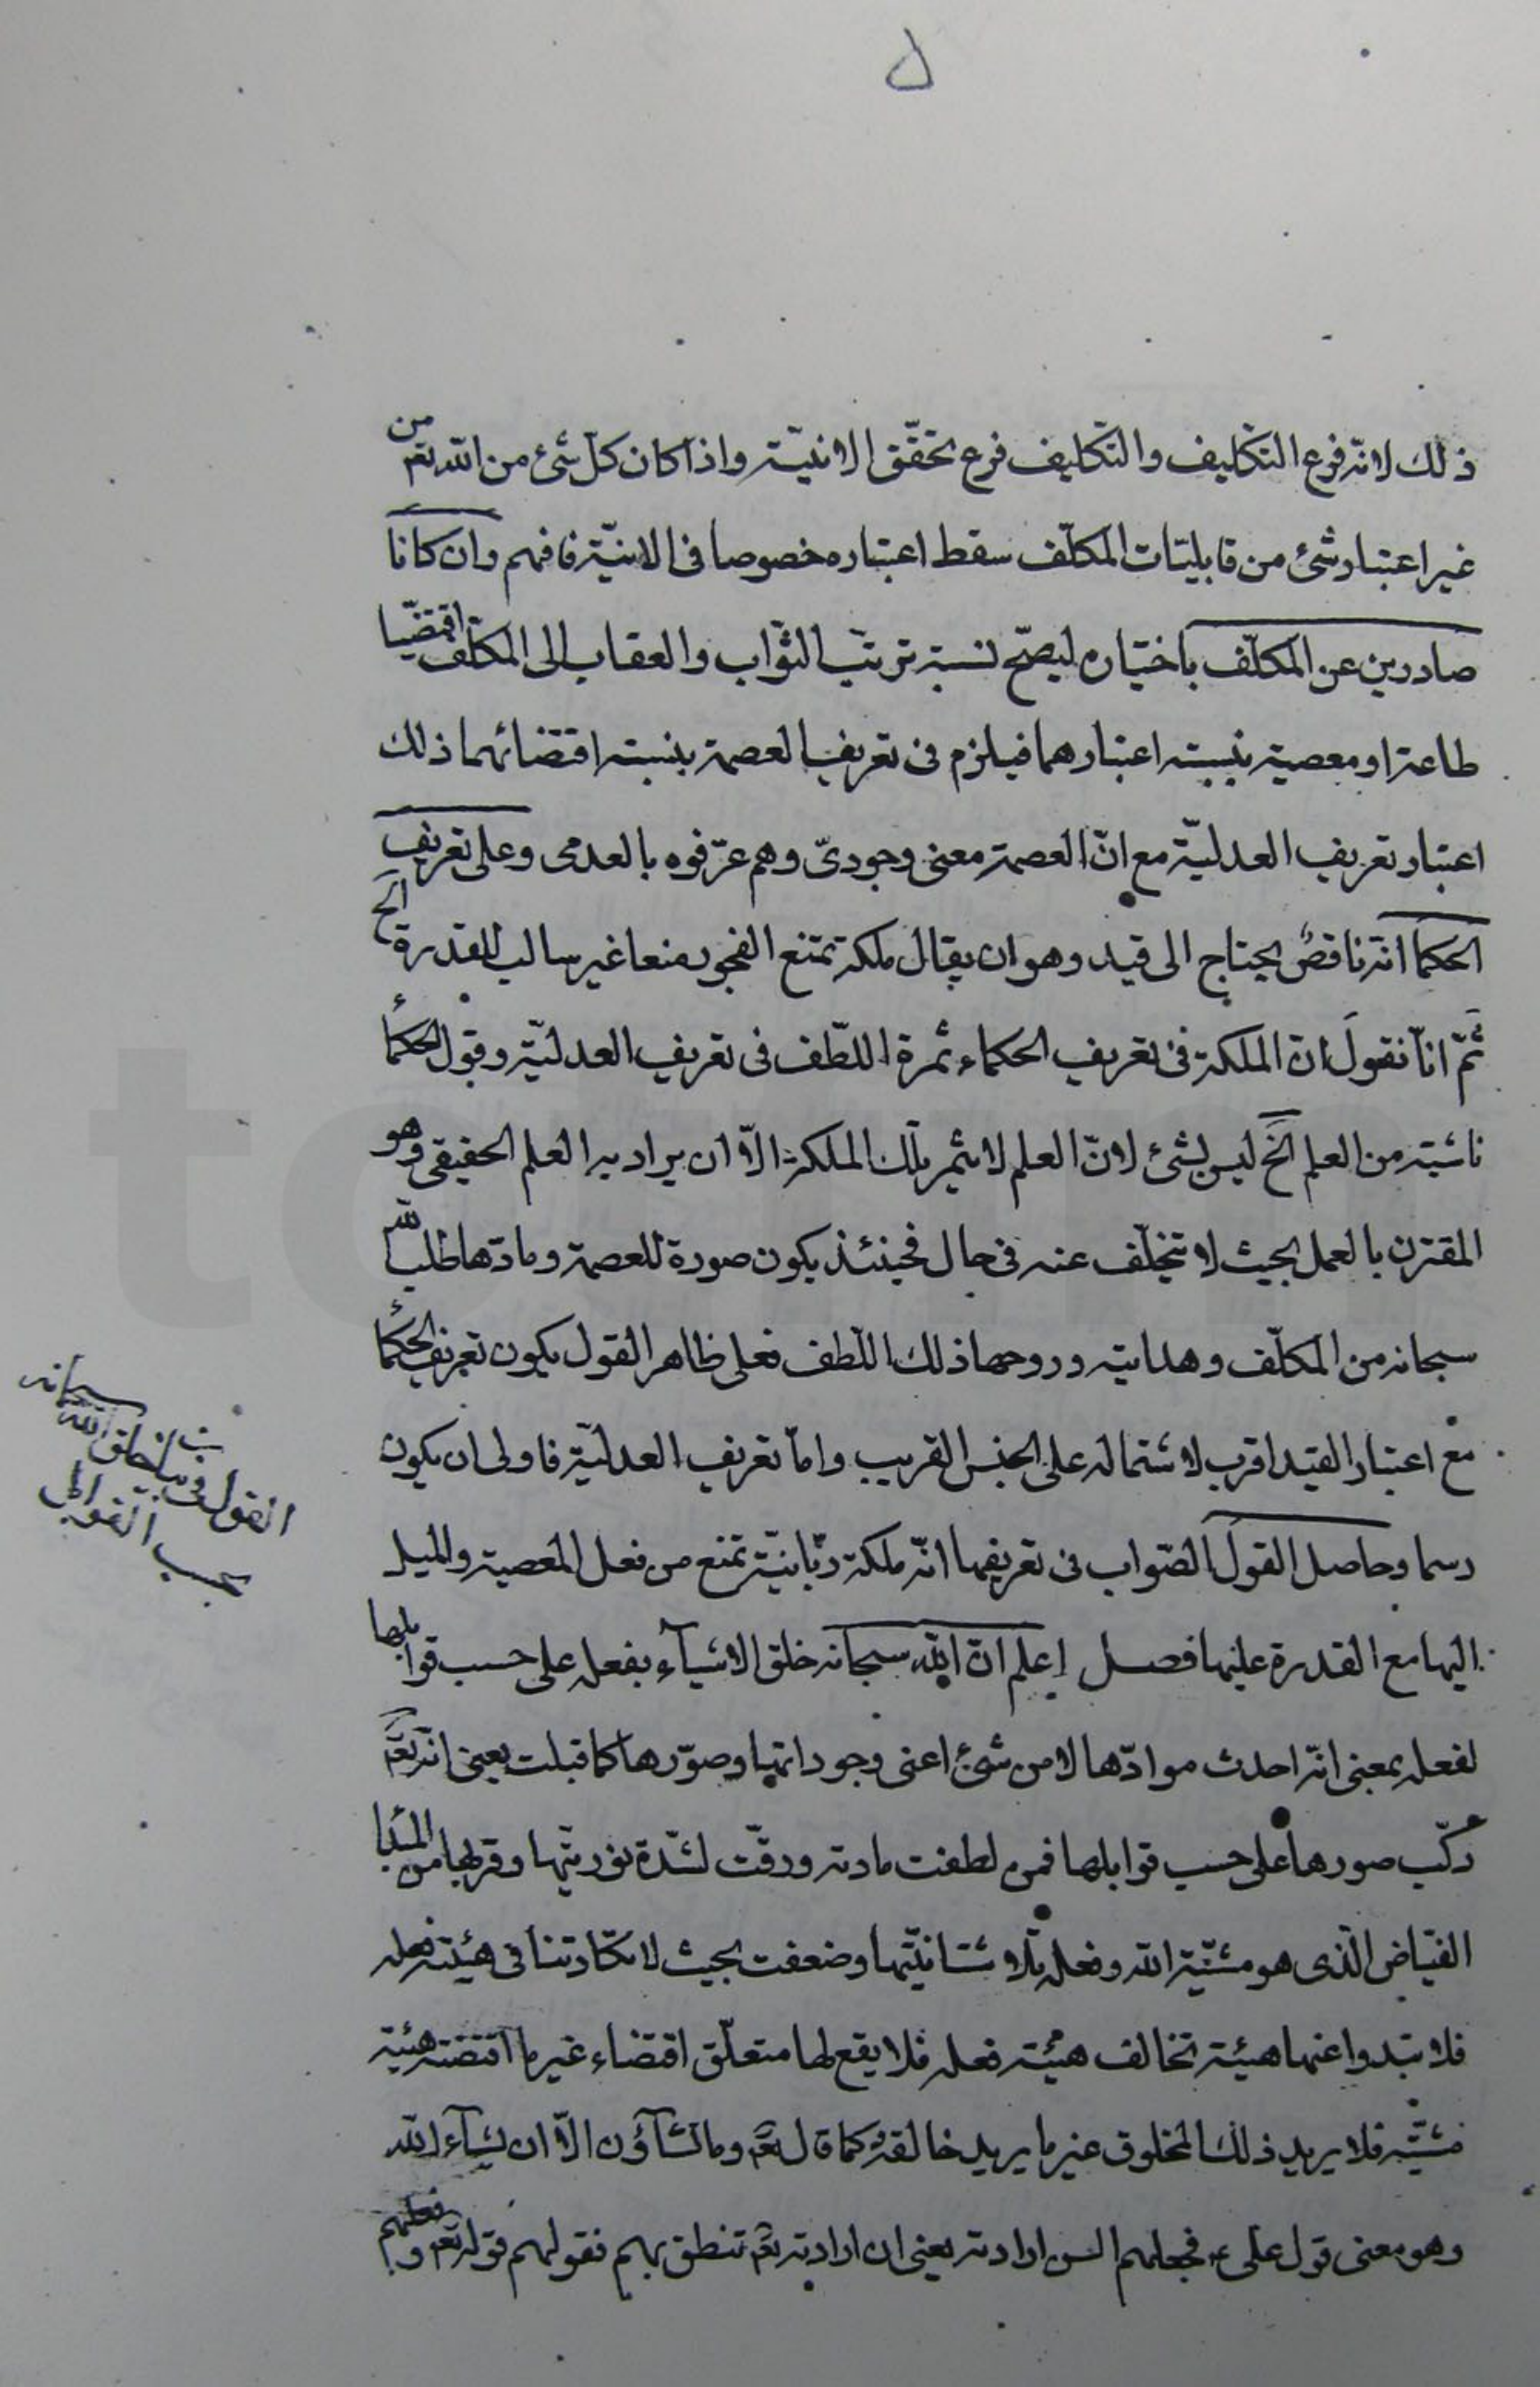 ذلك لانه فرع التكليف والتكليف فرع تحقّق الانيّته واذا كان كلّ شئ من الله تعم من
غير اعتبار شئ من قابليّات المكلّف سقط اعتباره خصوصا فى الانيّة فافهم وان كانا
صادرين عن المكلّف باختياره ليصحّ نسبة ترتب الثّواب والعقاب الى المكلّف اقتضيا
طاعة او معصية بنسبته اعتبارهما فيلزم فى تعريف العصمة بنسبته اقتضائهما ذلك
اعتبار تعريف العدليّة مع انّ العصمة معنى وجودىّ وهم عرّفوه بالعدمى وعلى تعريف
الحكما انّه ناقص يحتاج الى قيد وهو ان يقال ملكة تمنع الفجور منعا غير سالب للقدرة الخ
ثمّ انا نقول ان الملكة فى تعريف الحكماء ثمرة اللّطف فى تعريف العدليّة وقول الحكماء
ناشئة من العلم الخ ليس بشئ لانّ العلم لا يثمر تلك الملكة الاّ ان يراد به العلم الحقيقى وهو
المقترن بالعمل بحيث لا يتخلّف عنه فى حال فحينئذ يكون صورة للعصمة ومادّتها طلب الله
سبحانه من المكلّف وهدايته وروحها ذلك اللّطف فعلى ظاهر القول يكون تعريف الحكماء
مع اعتبار القيد اقرب لاشتماله على الجنس القريب وامّا تعريف العدليّة فاولى ان يكون
رسما وحاصل القول الصّواب فى تعريفها انّه ملكة ربّانيّة تمنع من فعل المعصية والميل
اليها مع القدرة عليها فصل اعلم انّ الله سبحانه خلق الاشيآء بفعله على حسب قوابلها
لفعله بمعنى انّه احدث موادّها لا من شئ اعنى وجوداتها وصوّرها كما قبلت يعنى انّه تعم
ركّب صورها على حسب قوابلها فمن لطفت مادته ورقّت لشدّة نوريّتها وقربها من المبدا
الفيّاض الّذى هو مشيّة الله وفعله تلاشت انيّتها وضعفت بحيث لا تكاد تنافى هيئة فعله
فلا تبدوا عنها هيئة تخالف هيئة فعله فلا يقع لها متعلّق اقتضاء غير ما اقتضته هيئة
مشيّته فلا يريد ذلك المخلوق غير ما يريد خالقه كما قال تعم وما تشآؤن الاّ ان يشآء الله
وهو معنى قول على ع فجعلهم السن ارادته يعنى ان ارادته تعم تنطق بهم فقولهم قوله تعم وفعلهم
القول فى بيان خلق الله سبحانه
بحسب القوابل